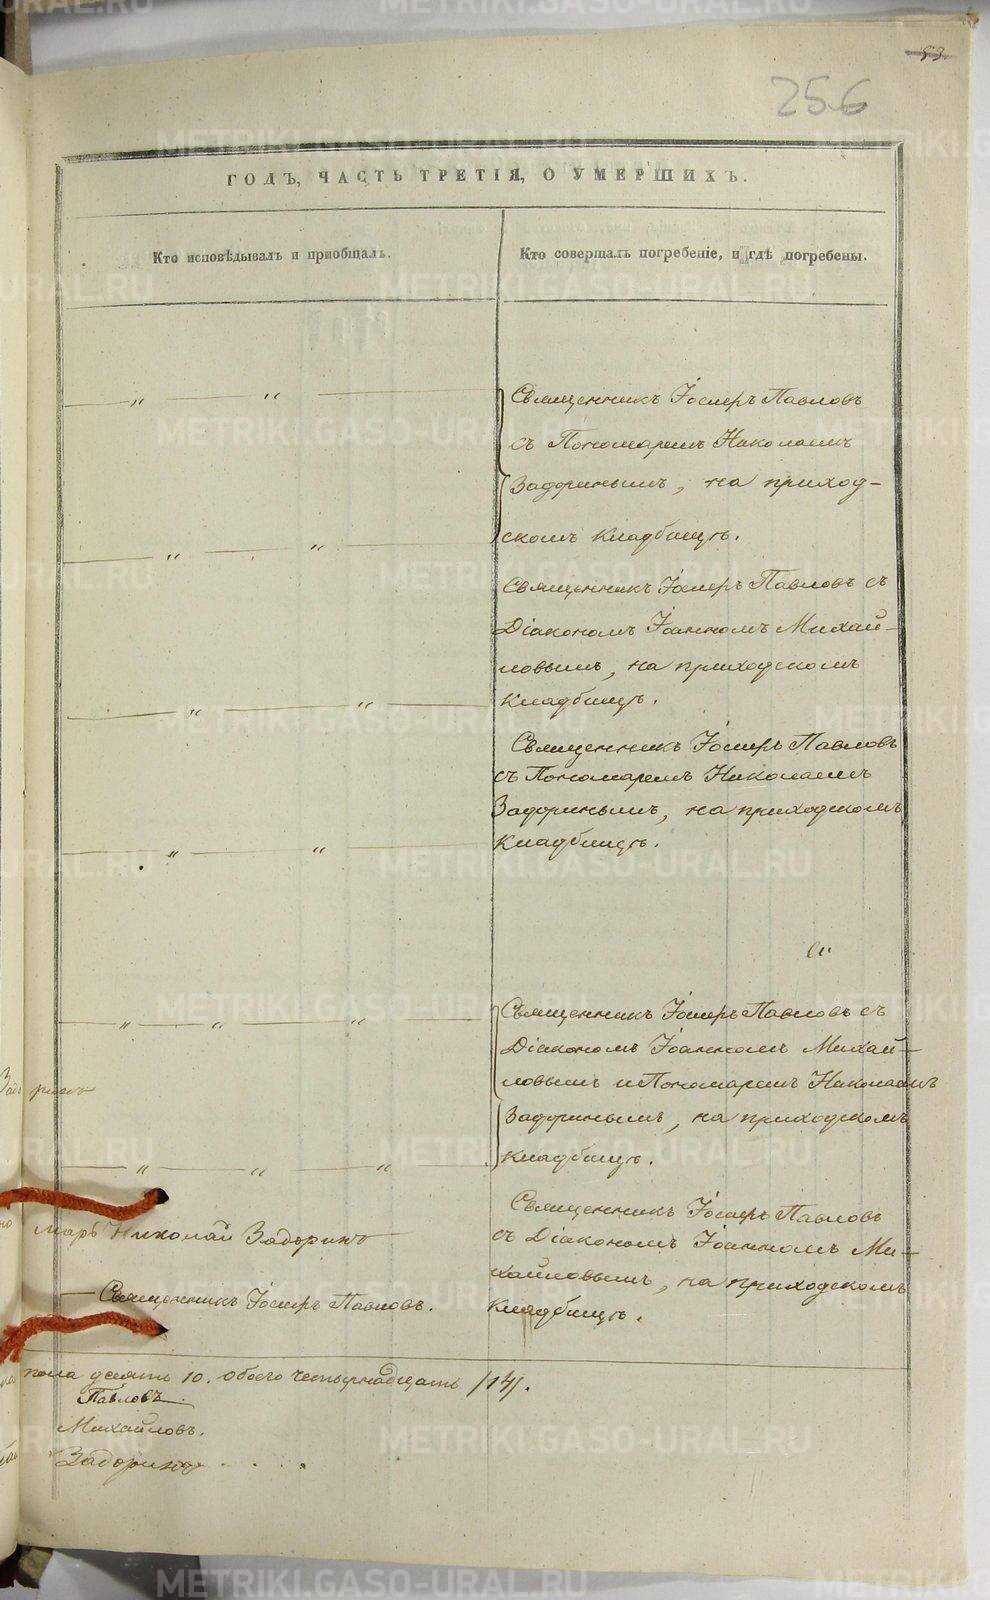 53
256
ГОДЪ, ЧАСТЬ ТРЕТІЯ, О УМЕРШИХЪ.
Кто исповѣдывалъ и пріобщалъ.
Кто совершалъ погребеніе, и гдѣ погребены.
Священникъ Іосифъ Павловъ
съ Пономаремъ Николаемъ
Задоринымъ, на приход-
скомъ кладбищѣ.
Священникъ Іосифъ Павловъ съ
Діакономъ Іоанномъ Михай-
ловымъ, на приходскомъ
кладбищѣ.
Священникъ Іосифъ Павловъ
съ Пономаремъ Николаемъ
Задоринымъ, на приходскомъ
кладбищѣ.
Священникъ Іосифъ Павловъ съ
Діакономъ Іоанномъ Михай-
ловымъ и Пономаремъ Николаемъ
Задоринымъ, на приходскомъ
кладбищѣ.
Священникъ Іосифъ Павловъ
съ Діакономъ Іоанномъ Ми-
хайловымъ, на приходскомъ
кладбищѣ.
марь Николай Задоринъ
Священникъ Іосифъ Павловъ.
пола десять 10. обоего четырнадцать /14/.
Павловъ
Михайловъ.
Задоринъ
METRIKI.GASO-URAL.RU